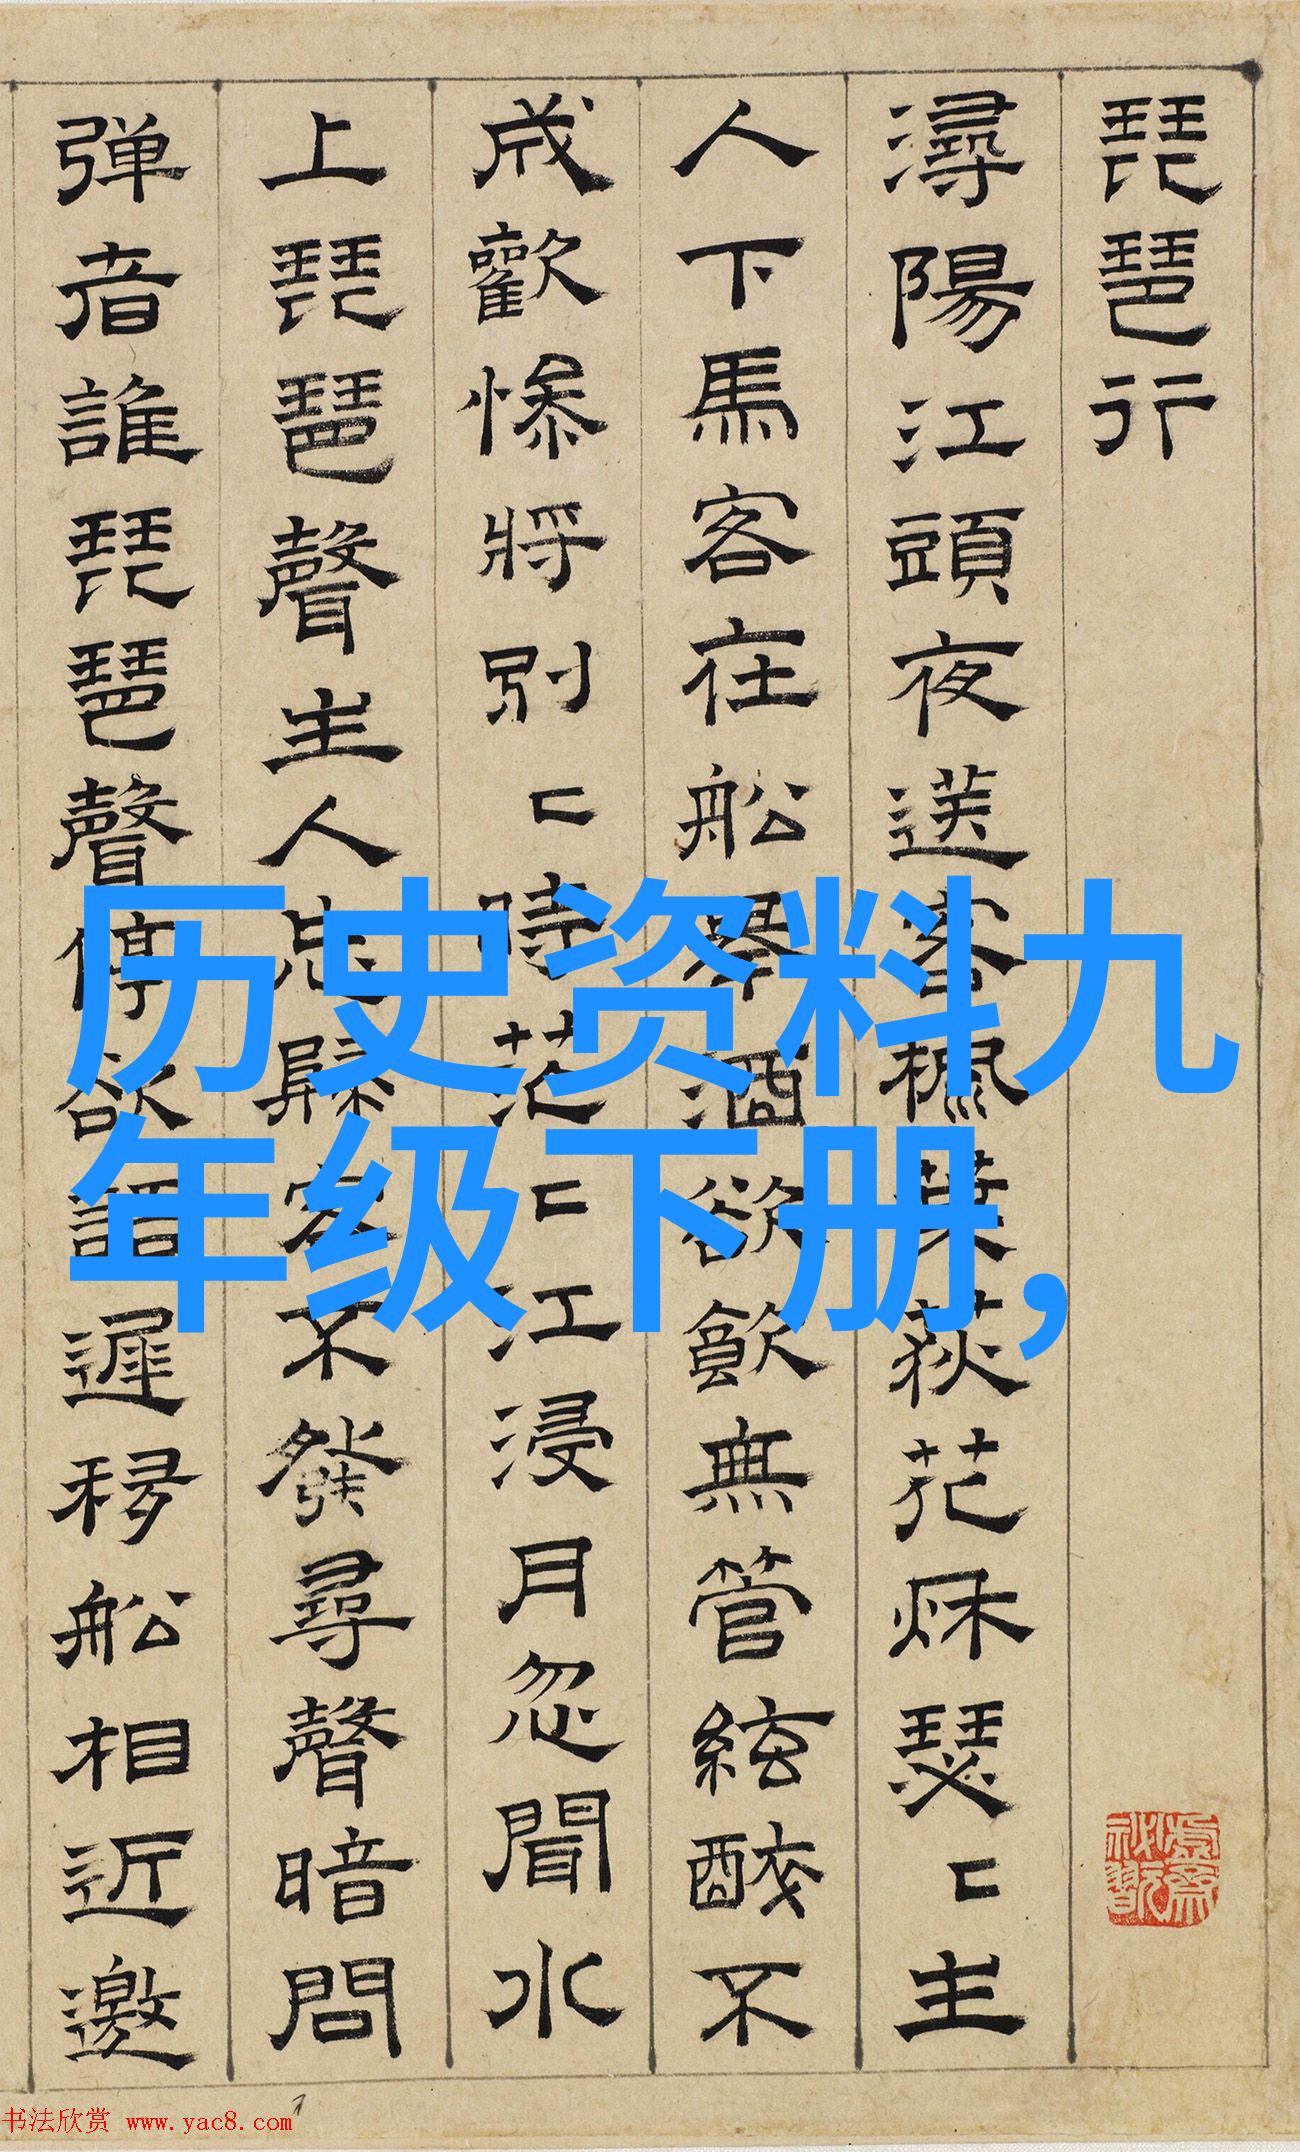 琵琶行
潯陽江頭夜送客楓葉荻花秌瑟〻主
人下馬客在船舉酒欲飲無管絃醉不
成歡慘將別〻時茫〻江浸月忽聞水
上琵琶聲主人忘歸客不發尋聲暗問
彈者誰琵琶聲停欲語遲移船相近邀
历史资料九
年级下册,
书法欣赏 www.yac8.com